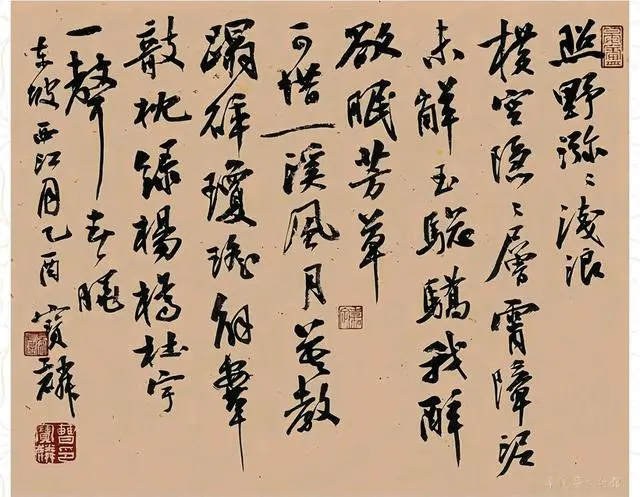 照野瀰〻淺浪
橫空隱〻層霄障泥
未解玉驄驕我醉
欲眠芳草
可惜一溪風月莫教
蹋碎瓊瑤解鞍
敧枕綠楊橋杜宇
一聲春曉
東坡西江月乙酉寶麟
曹印寶麟